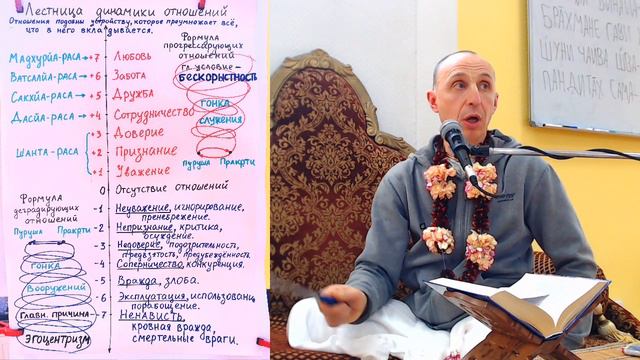 Лестница динамики отношений
Отношения подобны устройству, которое преумножает всё,
что в него вкладывается.
Мадхурйа-раса → +7 Любовь
Ватсалйа-раса → +6 Забота
Сакхйа-раса → +5 Дружба
Дасйа-раса → +4 Сотрудничество
Шанта-раса
+3 Доверие
+2 Признание
+1 Уважение
0 Отсутствие отношений
-1 Неуважение, игнорирование,
пренебрежение.
-2 Непризнание, критика,
осуждение.
-3 Недоверие, подозрительность,
предвзятость, предубеждённость.
-4 Соперничество, конкуренция.
-5 Вражда, злоба.
-6 Эксплуатация, использование,
порабощение.
-7 Ненависть,
кровная вражда,
смертельные враги.
Формула
прогрессирующих
отношений
Гл. условие -
бескорыстность
гонка
служения
Пуруша Пракрти
Формула
деградирующих
отношений
Пуруша Пракрти
гонка
вооружений
Главн. причина -
Эгоцентризм
БРАХМАНЕ ГАВИ
ШУНИ ЧАИВА
ПАНДИТАХ САМА-